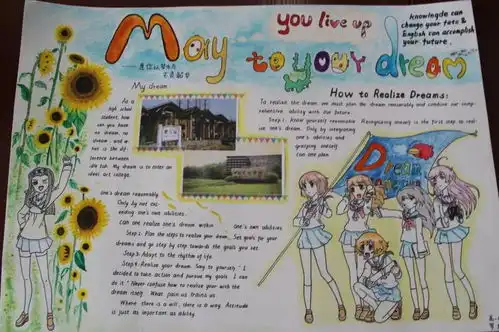 May you live up
to your dream
knowlngde can
change your fate &
English can accomplish
your future.
My dream
As a
high school
student, how
can you have
no dream, no
dream and
not is the dif
ference between
My dream is to enter an
ideal art college.
one's dream reasonably
Only by not exc
eeding one's own abilities.
Can one realize one's dream within one's own abilities
Step 2: Plan the steps to realize your dream. Set goals for your
dreams and go step by step towards the goals you set
Step 3: Adapt to the rhythm of life
Step 4: Realize your dream. Say to yourself "I
decided to take action and pursue my goals. I can
do it." Never confuse how to realize your with the
dream itself. What pain us trains us
Where there is a will, there is a way. Attitude
is just as important as ability.
How to Realize Dreams:
To realize the dream, we must plan the dream reasonably and combine our comp-
rehensive ability with our future.
Step 1: Know yourself reasonable Recognizing oneself is the first step to real-
ize one's dream. Only by integrating
one's abilities and
grasping oneself
Can one plan
Dream